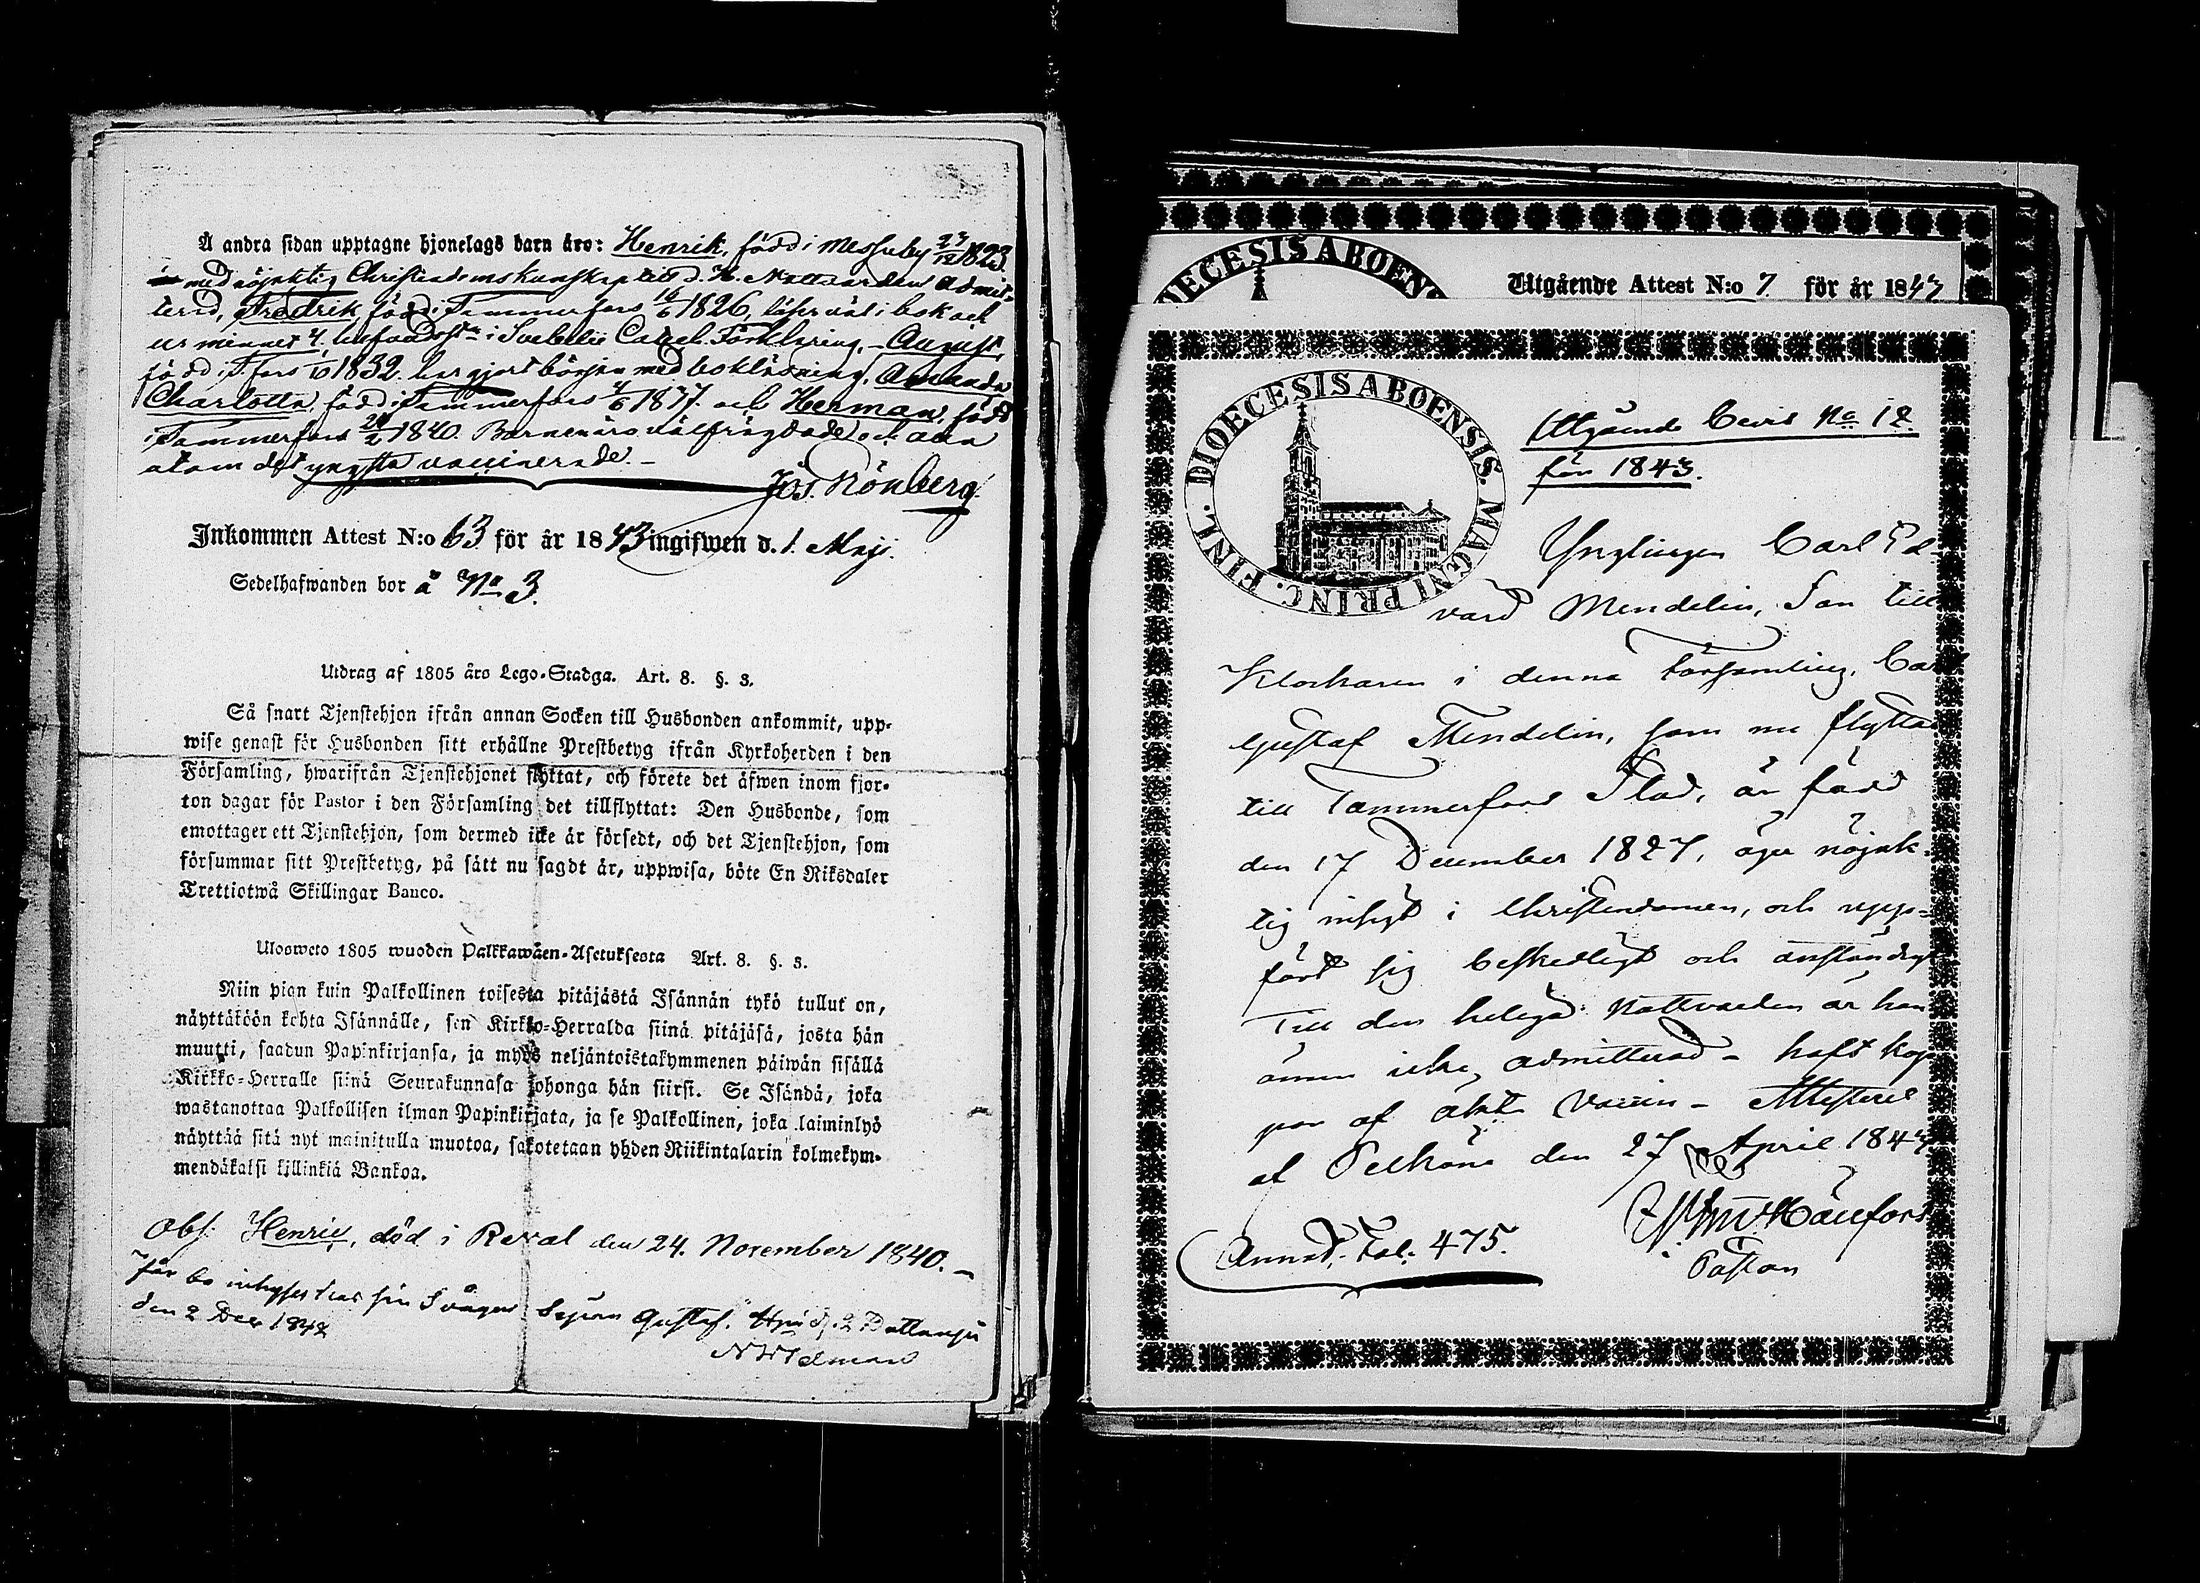 Å andra sidan upptagne hjonelags barn äro: Henrik, född i Messuby 23/12 1823.
med nöjaktig Christendomskunskap till d. H. Nattvarden admit-
terad, Fredrik, född i Tammerfors 16/6 1826, läser väl i bok och
ur minnet 4 i Svebelii Catech. Förklaring, - August,
född i Tfors 1832. har gjort början med bokläsning, Amanda
Charlotta, född i Tammerfors 4/6 1837. och Herman, född
i Tammerfors 1840. Barnen äro välfrägdade och alla
utom det yngsta vaccinerade. -
Jos. Rönberg.
Inkommen Attest N:o 63 för år 1843 ingifwen d. 1. Maji.
Sedelhafwanden bor å No 3.
Utdrag af 1805 års Lego-Stadga. Art. 8. §. 3.
Så snart Tjenstehjon ifrån annan Socken till Husbonden ankommit, upp-
wise genast för Husbonden sitt erhållne Prestbetyg ifrån Kyrkoherden i den
Församling, hwarifrån Tjenstehjonet flyttat, och förete det äfwen inom fjor-
ton dagar för Pastor i den Församling det tillflyttat: Den Husbonde, som
emottager ett Tjenstehjon, som dermed icke är försedt, och det Tjenstehjon, som
försummar sitt Prestbetyg, på sätt nu sagdt är, uppwisa, böte En Riksdaler
Trettiotwå Skillingar Banco.
Ulosweto 1805 wuoden Palkkawäen-Asetuksesta Art. 8. §. 3.
Niin pian kuin Palkollinen toisesta pitäjästä Isännän tykö tullut on,
näyttäköön kohta Isännälle, sen Kirkko-Herralda siinä pitäjäsä, josta hän
muutti, saadun Papinkirjansa, ja myös neljäntoistakymmenen päiwän sisällä
Kirkko-Herralle siinä Seurakunnasa johonga hän siirsi. Se Isändä, joka
wastanottaa Palkollisen ilman Papinkirjata, ja se Palkollinen, joka laiminlyö
näyttää sitä nyt mainitulla muotoa, sakotetaan yhden Riikintalarin kolmekym-
mendäkaksi killinkiä Bankoa.
Obs: Henric, död i Reval den 24. November 1840. -
Får bo inhyses hos sin Svåger Gustaf
den 2 Decr 1842
Utgående Attest N:o 7 för år 1843
DIOECESIS ABOENSIS. MAGNI PRINC. FINL.
Utgående Bevis No 12
för 1843.
Ynglingen Carl Ed-
vard Mendelin, Son till
Klockaren i denna Församling, Carl
Gustaf Mendelin, som nu flyttar
till Tammerfors Stad, är född
den 17 December 1827, äger nöjak-
tig insigt i Christendomen, och upp-
fört sig beskedligt och anständigt
Till den heliga Nattvarden är han
ännu icke admitterad - haft kop-
por af äkta Vaccin - Attesterar
af Pelkäne den 27 April 1843
Pastor
Annot. Fol: 475.